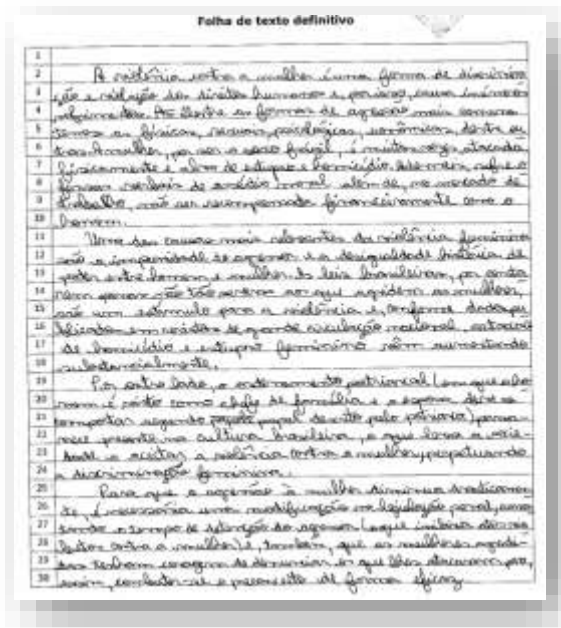 Folha de texto definitivo
1
2 A violência contra a mulher é uma forma de discrimina
3 ção e violação dos direitos humanos e, por isso, causa inúmeros
4 sofrimentos. Dentre as formas de agressão mais comuns
5 temos as físicas, sexuais, psicológicas, econômicas, dentre ou
6 tras. A mulher, por ser o sexo frágil, é muitas vezes atacada
7 fisicamente e alvo de estupro e homicídio. Ademais, sofre
8 formas verbais de assédio moral além de, no mercado de
9 trabalho, não ser recompensada financeiramente como o
10 homem.
11 Uma das causas mais relevantes da violência feminina
12 são a impunidade do agressor e a desigualdade histórica de
13 poder entre homem e mulher. As leis brasileiras, por
14 penas tão aos que agridem as mulheres,
15 são um estímulo para a violência e, conforme dados pu
16 blicados em revistas de grande circulação nacional,
17 de homicídio e estupro feminino vêm aumentando
18 substancialmente.
19 Por outro lado, o ordenamento patriarcal (em que o ho
20 mem é visto como chefe de família e a esposa deve se
21 comportar segundo papel descrito pelo patriarca) perma-
22 nece presente na cultura brasileira, o que leva a socie-
23 dade a aceitar a violência contra a mulher, perpetuando
24 a discriminação feminina.
25 Para que a agressão à mulher diminua drasticamen
26 te, é necessária uma modificação na legislação penal, aumen
27 tando o tempo de detenção do agressor (o que inibiria
28 contra a mulher) e, também, que as mulheres agredi-
29 das tenham coragem de denunciar os que lhes atacaram para,
30 assim, combater-se o preconceito de forma eficaz.